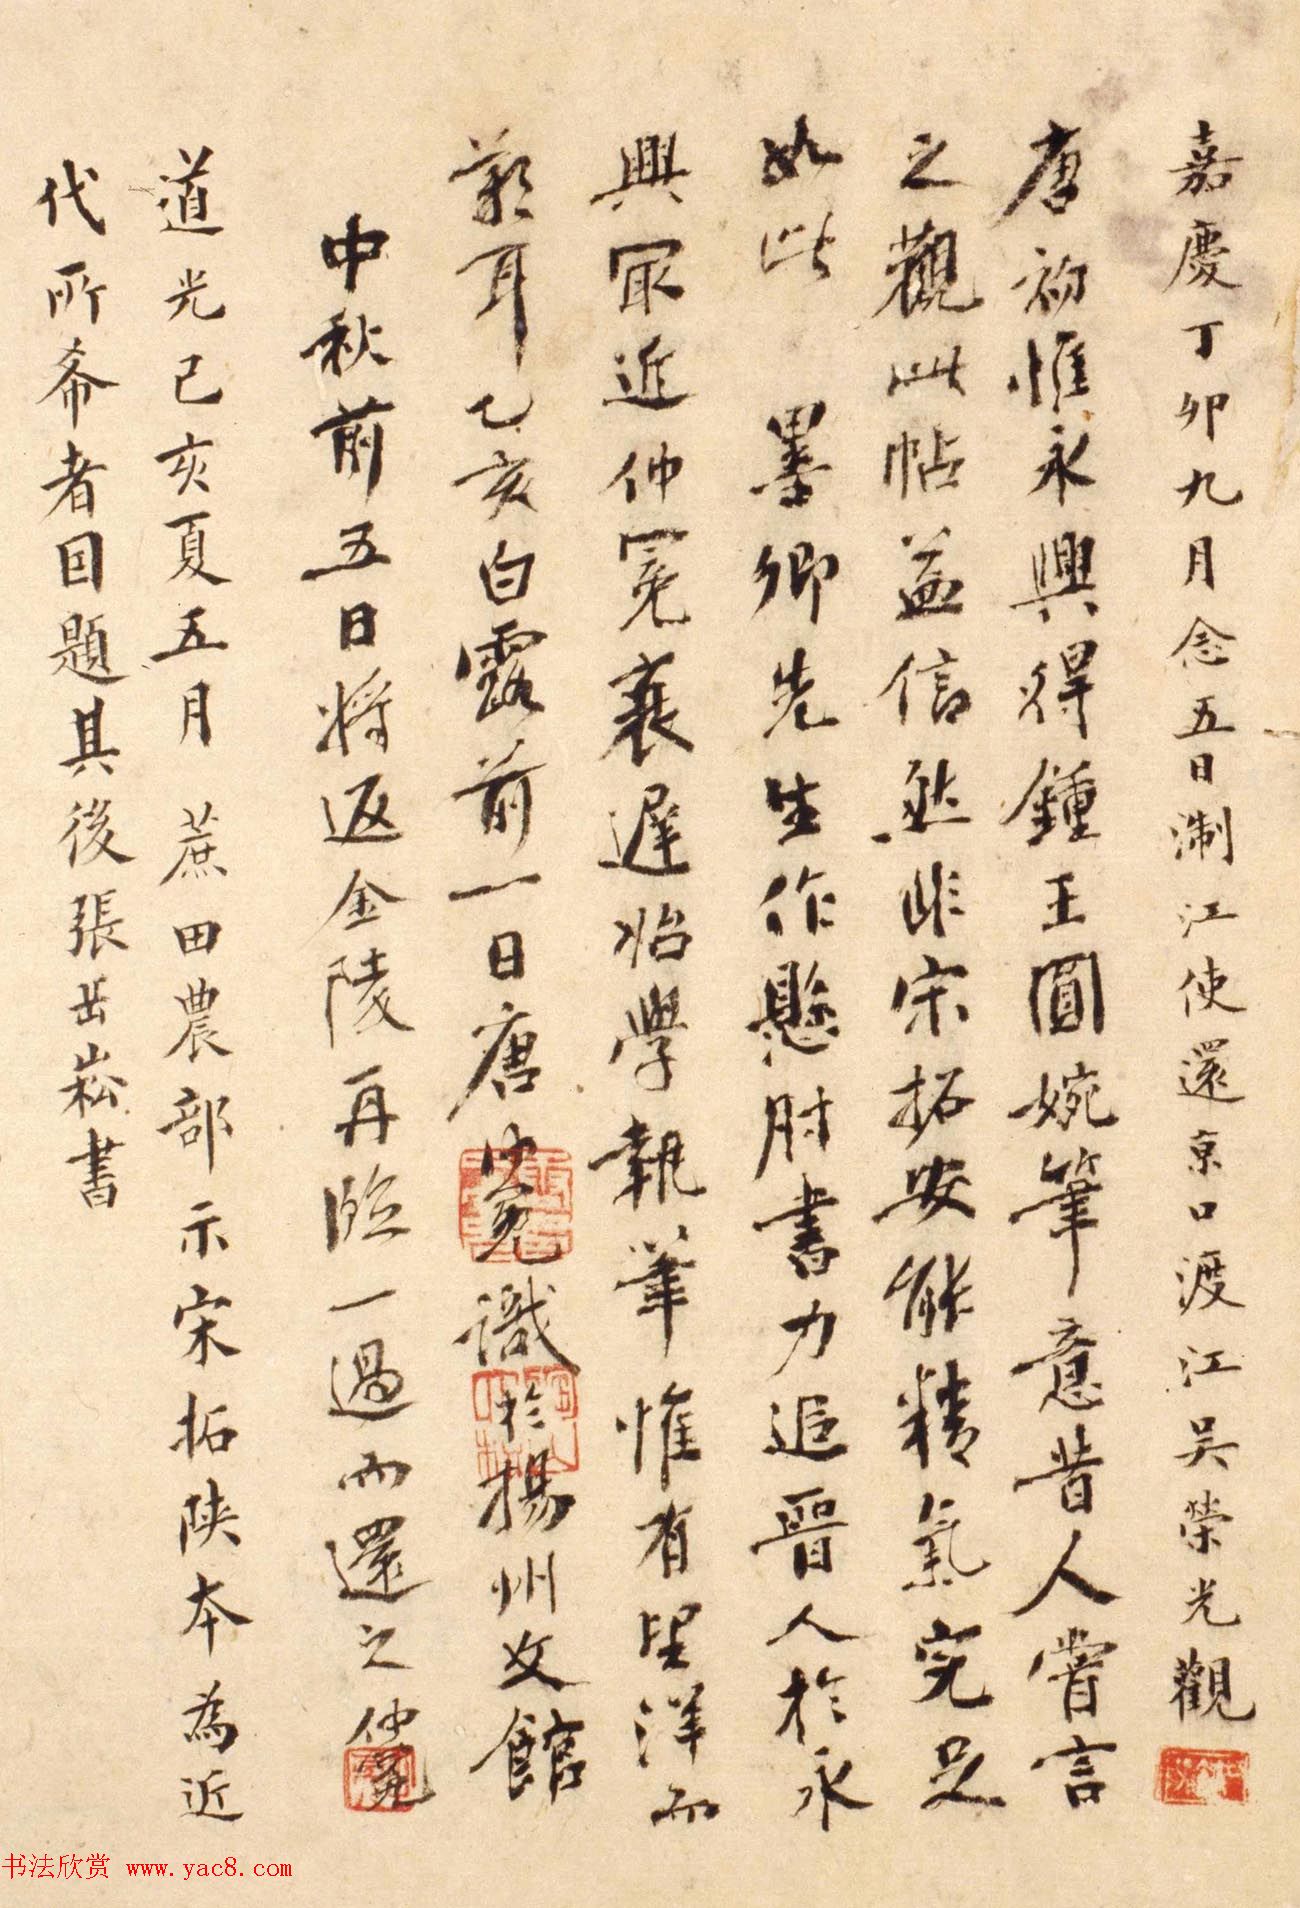 嘉慶丁卯九月念五日淛江使還京口渡江吳榮光觀
唐初惟永興得鍾王圓婉筆意昔人嘗言
之觀此帖益信然非宋拓安能精氣完足
如此 墨卿先生作懸肘書力追晉人於永
興冣近仲冕衰遲始學執筆惟有望洋而
歎耳乙亥白露前一日唐仲冕識於揚州文館
中秋前五日將返金陵再臨一過而還之仲冕
道光己亥夏五月 蔗田農部 示宋拓陝本為近
代所希者因題其後張岳崧書
书法欣赏 www.yac8.com